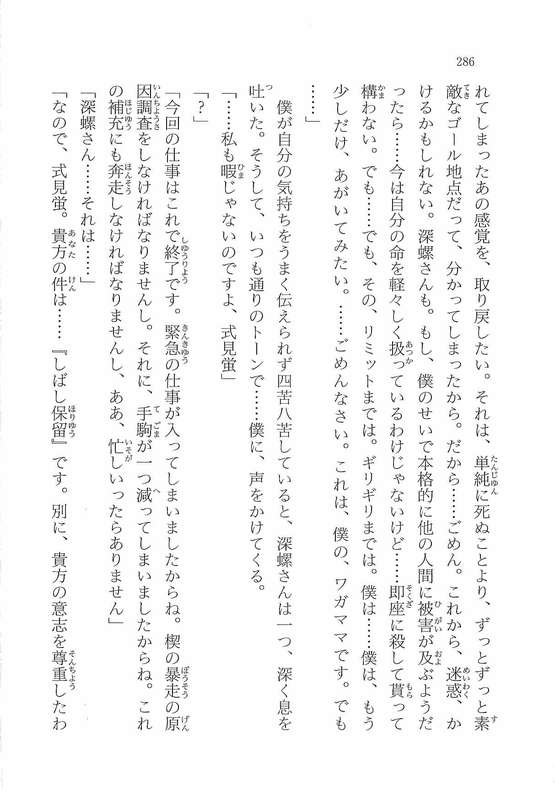 286
れてしまったあの感覚を、取り戻したい。それは、単純に死ぬことより、ずっとずっと素
敵なゴール地点だって、分かってしまったから。だから……ごめん。これから、迷惑、か
けるかもしれない。深螺さんも。もし、僕のせいで本格的に他の人間に被害が及ぶようだ
ったら……今は自分の命を軽々しく扱っているわけじゃないけど……即座に殺して貰って
構わない。でも……でも、その、リミットまでは。ギリギリまでは。僕は……僕は、もう
少しだけ、あがいてみたい。……ごめんなさい。これは、僕の、ワガママです。でも
……」
僕が自分の気持ちをうまく伝えられず四苦八苦していると、深螺さんは一つ、深く息を
吐いた。そうして、いつも通りのトーンで……僕に、声をかけてくる。
「……私も暇じゃないのですよ、式見蛍」
「?」
「今回の仕事はこれで終了です。緊急の仕事が入ってしまいましたからね。楔の暴走の原
因調査をしなければなりませんし。それに、手駒が一つ減ってしまいましたからね。これ
の補充にも奔走しなければなりませんし、ああ、忙しいったらありません」
「深螺さん……それは……」
「なので、式見蛍。貴方の件は……『しばし保留』です。別に、貴方の意志を尊重したわ